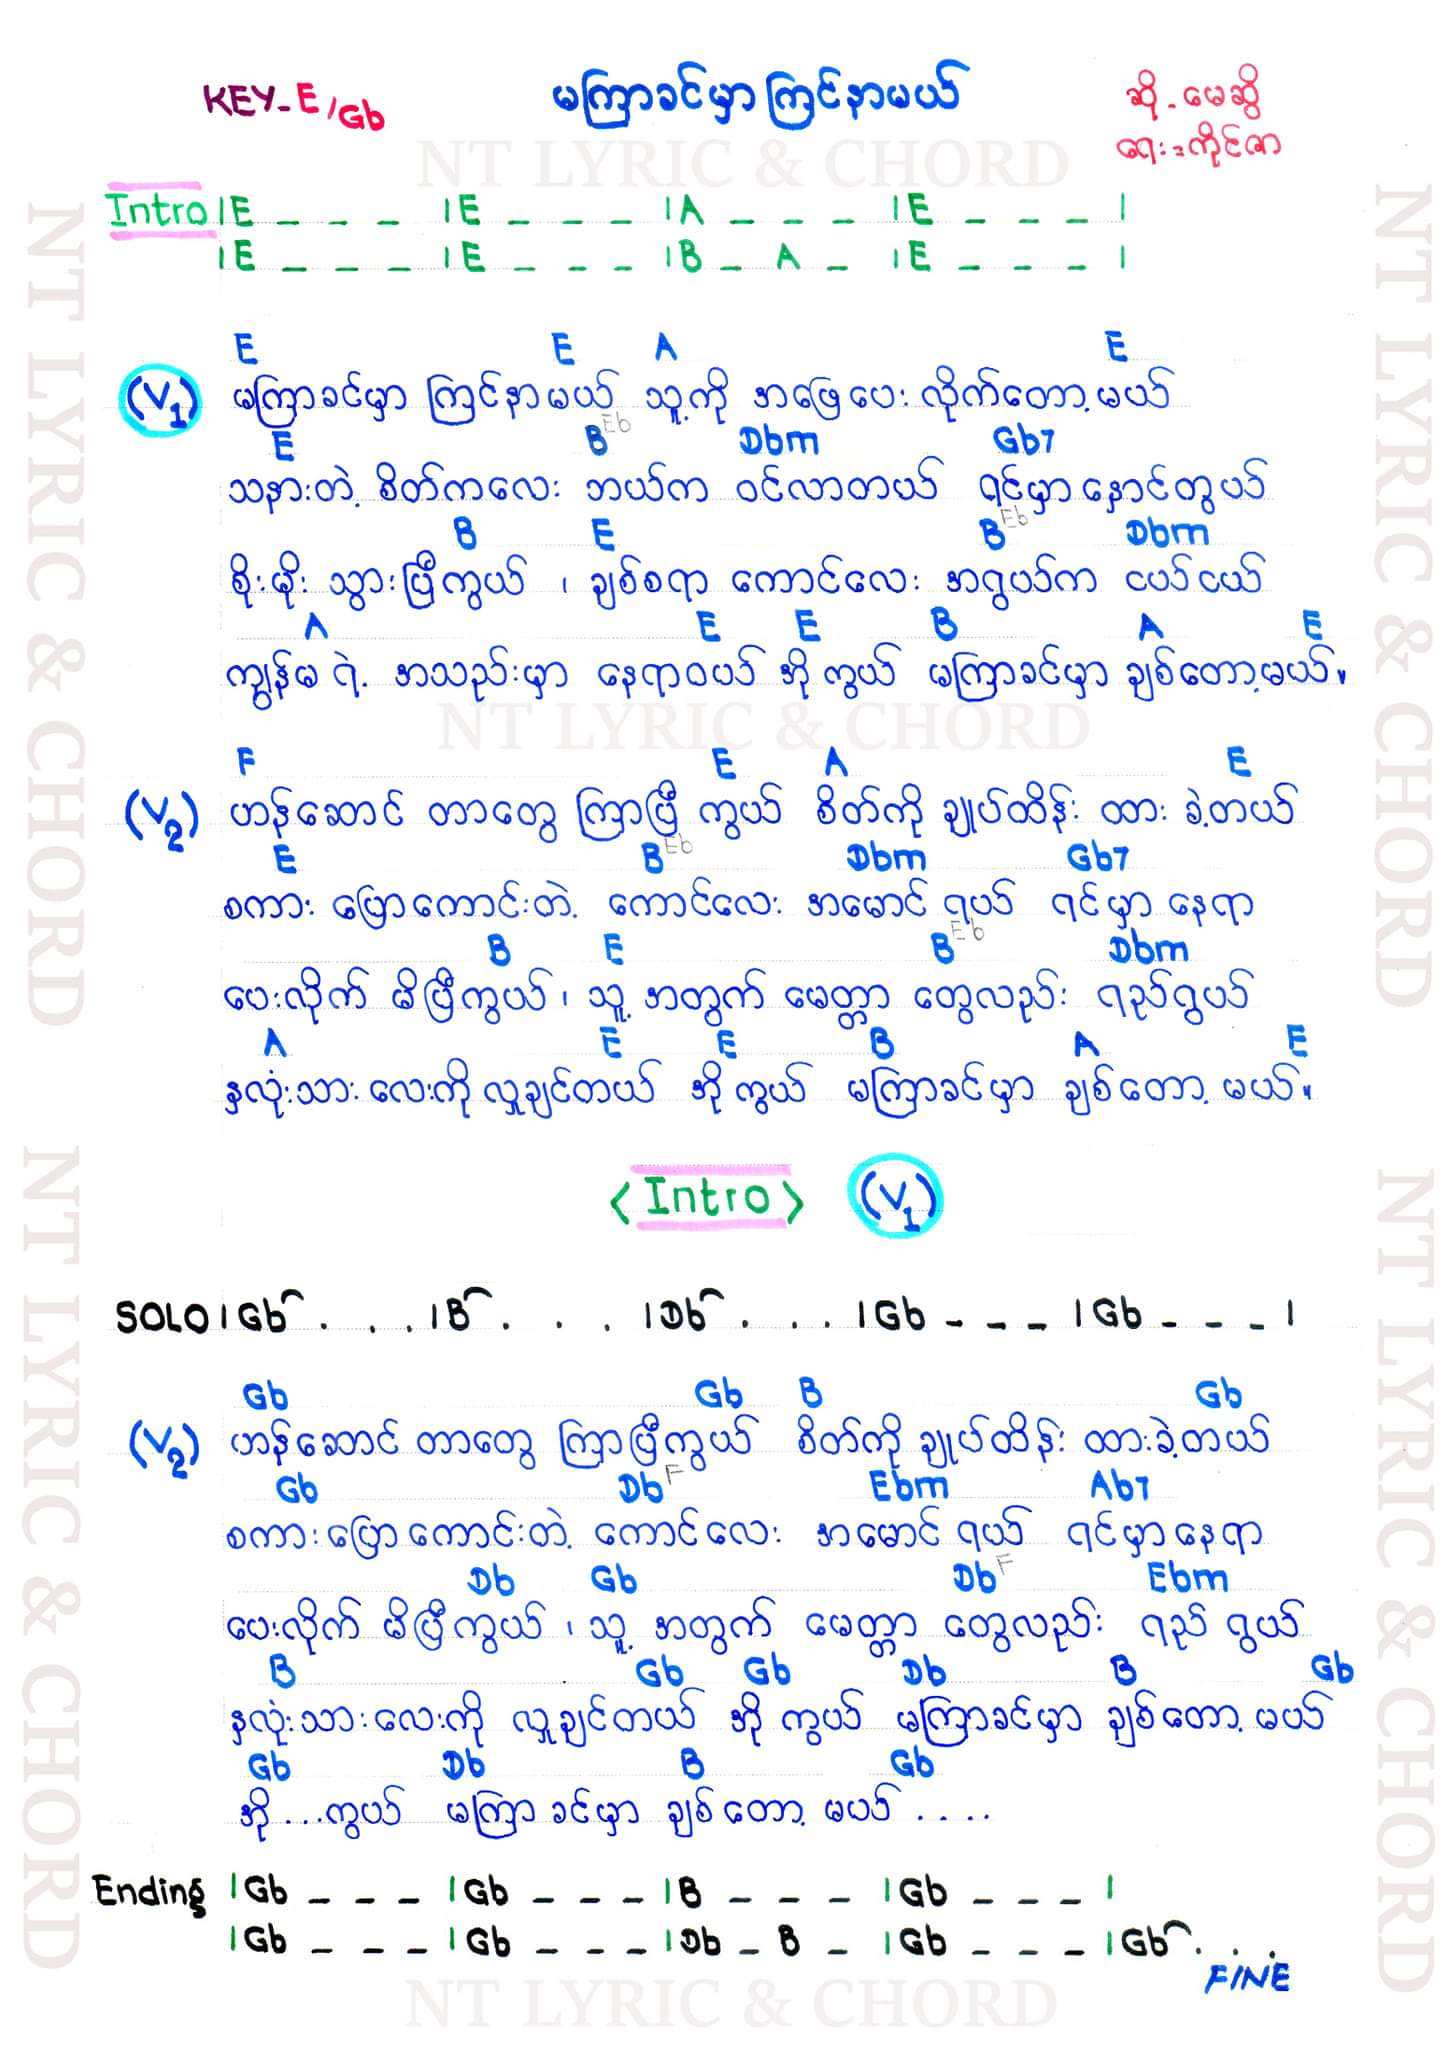 KEY - E/Gb မကြာခင်မှာ ကြင်နာမယ် ဆို - မေဆွိ
ရေး = ကိုင်ဇာ
NT LYRIC & CHORD
Intro |E _ _ _ |E _ _ _ |A _ _ _ |E _ _ _ |
|E _ _ _ |E _ _ _ |B _ A _ |E _ _ _ |
E E A E
(V1) မကြာခင်မှာ ကြင်နာမယ် သူ့ကို အဖြေပေး လိုက်တော့မယ်
E B Eb Dbm Gb7
သနားတဲ့ စိတ်ကလေး ဘယ်က ဝင်လာတယ် ရင်မှာ နှောင်တွယ်
B E B Eb Dbm
စိုးမိုး သွားပြီကွယ် ၊ ချစ်စရာ ကောင်လေး အရွယ်က ငယ်ငယ်
A E E B A E
ကျွန်မ ရဲ့ အသည်းမှာ နေရာဝယ် အို ကွယ် မကြာခင်မှာ ချစ်တော့မယ်။
NT LYRIC & CHORD
F E A E
(V2) ဟန်ဆောင် တာတွေ ကြာပြီ ကွယ် စိတ်ကို ချုပ်ထိန်း ထား ခဲ့တယ်
E B Eb Dbm Gb7
စကား ပြောကောင်းတဲ့ ကောင်လေး အမောင် ရယ် ရင်မှာ နေရာ
B E B Eb Dbm
ပေးလိုက် မိပြီကွယ် ၊ သူ့ အတွက် မေတ္တာ တွေလည်း ရည်ရွယ်
A E E B A E
နှလုံးသား လေးကို လှူချင်တယ် အို ကွယ် မကြာခင်မှာ ချစ်တော့ မယ်။
< Intro > (V1)
SOLO |Gb . . . |B . . . |Db . . . |Gb _ _ _ |Gb _ _ _ |
Gb Gb B Gb
(V2) ဟန်ဆောင် တာတွေ ကြာပြီကွယ် စိတ်ကို ချုပ်ထိန်း ထားခဲ့တယ်
Gb Db F Ebm Ab7
စကားပြော ကောင်းတဲ့ ကောင်လေး အမောင် ရယ် ရင်မှာ နေရာ
Db Gb Db F Ebm
ပေးလိုက် မိပြီကွယ် ၊ သူ့ အတွက် မေတ္တာ တွေလည်း ရည် ရွယ်
B Gb Gb Db B Gb
နှလုံးသားလေးကို လှူချင်တယ် အို ကွယ် မကြာခင်မှာ ချစ်တော့ မယ်
Gb Db B Gb
အို ...ကွယ် မကြာ ခင်မှာ ချစ်တော့ မယ် ....
Ending |Gb _ _ _ |Gb _ _ _ |B _ _ _ |Gb _ _ _ |
|Gb _ _ _ |Gb _ _ _ |Db _ B _ |Gb _ _ _ |Gb . . .
FINE
NT LYRIC & CHORD
NT LYRIC & CHORD
NT LYRIC & CHORD
NT LYRIC & CHORD
NT LYRIC & CHORD